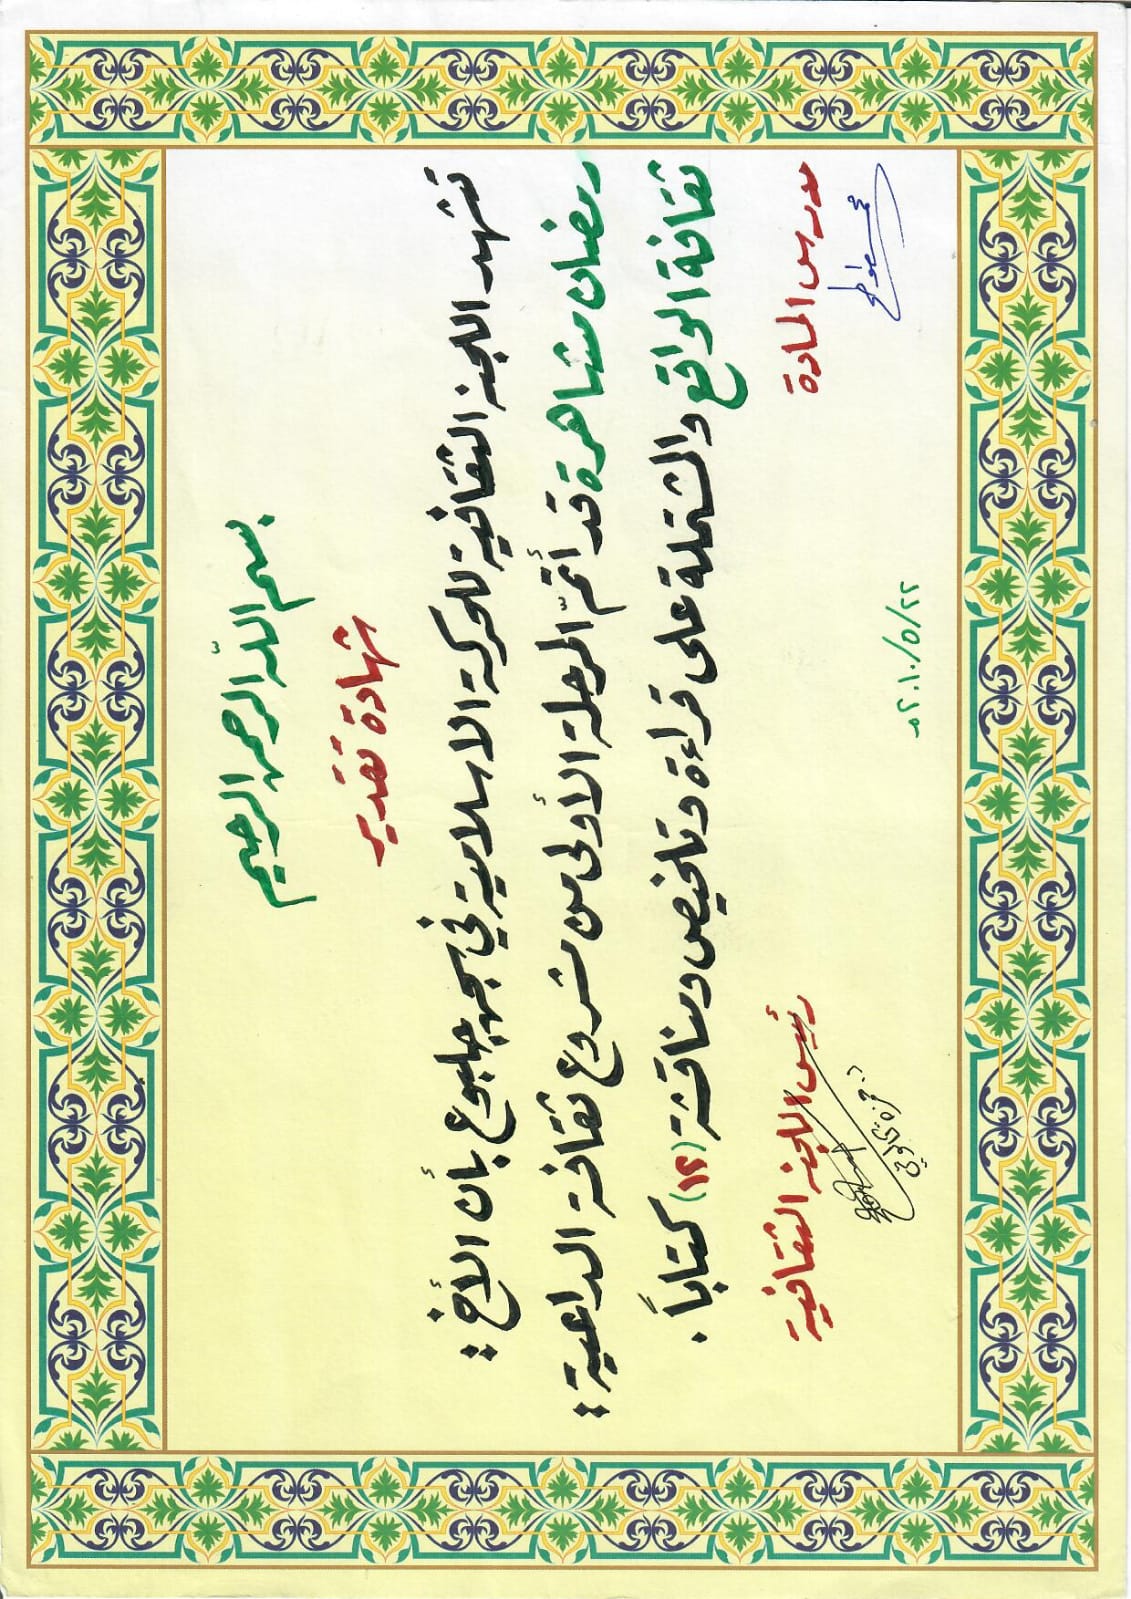 بسم اللّه الرحمن الرحيم
شهادة تقدير
تشهد اللجنة الثقافية للحركة الاسلامية في سجن جلبوع بأن الأخ :
رمضان مشاهرة قد أتمّ المرحلة الأولى من مشروع ثقافة الداعية :
ثقافة الواقع والمشتملة على قراءة وتلخيص ومناقشة (١٢) كتاباً .
مدرس المادة
رئيس اللجنة الثقافية
٢٠١٠/٥/٢٢م